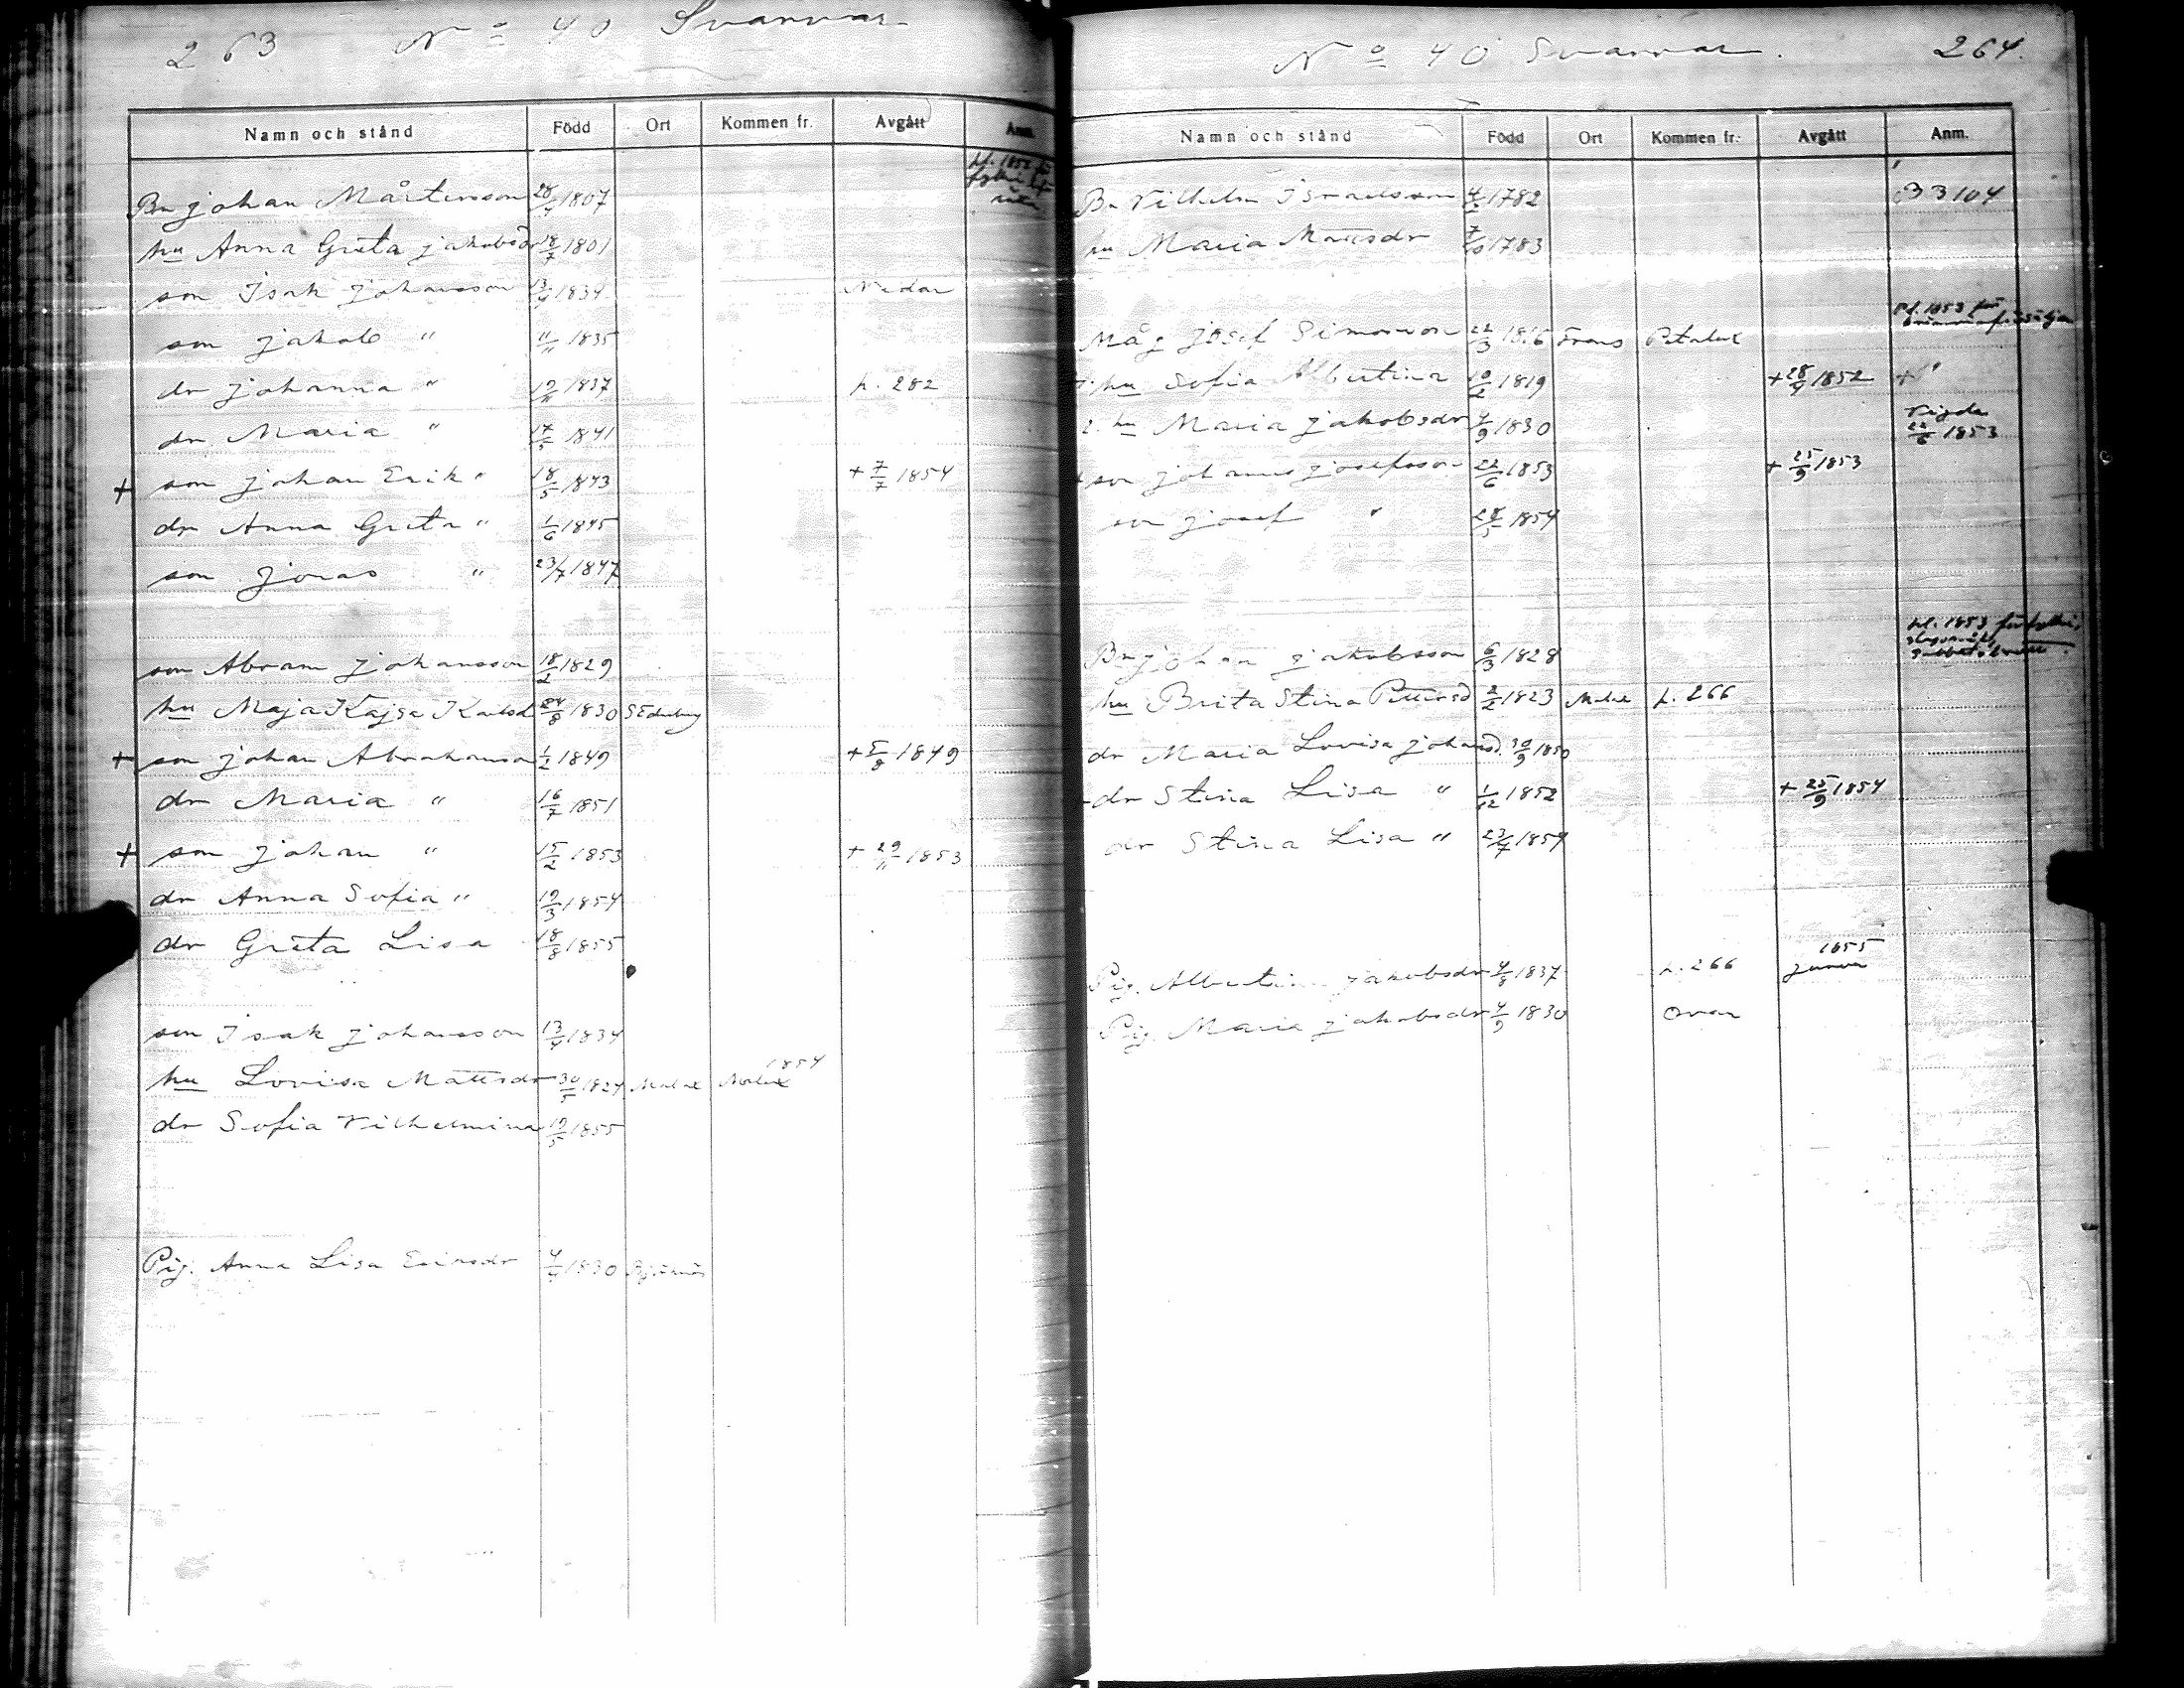 263 No 40 Svarvar
Namn och stånd Född Ort Kommen fr. Avgått Anm.
Bn johan Mårtensson 28/4 1807
hu Anna Greta jakobsdr 18/7 1801
son Isak johansson 13/4 1834 Nedan
son jakob " 11/11 1835
dr johanna " 19/11 1837 p. 282
dr Maria " 1841
+ son johan Erik " 18/5 1843 + 7/7 1854
dr Anna Greta " 1/6 1845
son jonas " 23/7 1847
son Abram johansson 18/2 1829
hu Maja Kajsa Karlsd 24/8 1830
+ son johan Abrahamson 1/2 1849 + 5/8 1849
dr Maria " 16/7 1851
+ son johan " 15/2 1853 + 29/11 1853
dr Anna Sofia " 19/3 1854
dr Greta Lisa 18/8 1855
son Isak johansson 13/4 1834
1854
hu Lovisa Mattsdr 30/5 1824 Malax Malax
dr Sofia Vilhelmina 19/5 1855
Pig. Anna Lisa Eriksdr 1830
No 40 Svarvar. 264.
Namn och stånd Född Ort Kommen fr. Avgått Anm.
Bn Vilhelm Israelsson 4/2 1782 B 3 104
hu Maria Mattsdr 7/10 1783
Måg josef Simonsson 22/3 1816 Petalax
1. hu Sofia Albertina 19/2 1819 + 28/9 1852
2. hu Maria jakobsdr 4/9 1830 Vigda 22/6 1853
+ son johannes josefsson 22/6 1853 + 25/9 1853
son josef " 28/5 1854
Bn johan jakobsson 6/3 1828
hu Brita Stina Pettersd 2/2 1823 Malax p. 266
dr Maria Lovisa johansd. 30/9 1850
dr Stina Lisa " 1/12 1852 + 25/9 1854
dr Stina Lisa " 23/7 1854
1855
Pig. Albertina jakobsdr 4/8 1837 p. 266
Pig. Maria jakobsdr 4/9 1830 ovan